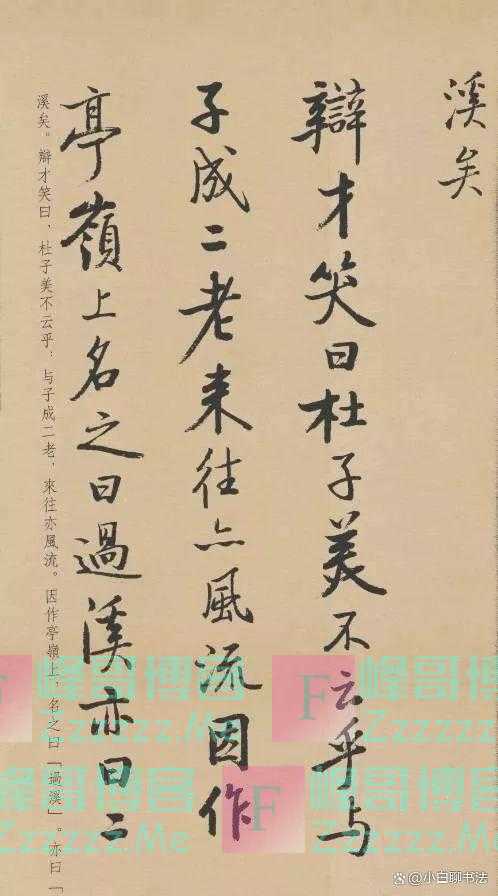 溪矣
辯才笑曰杜子美不云乎与
子成二老来往亦風流因作
亭嶺上名之曰過溪亦曰二
溪矣。辯才笑曰，杜子美不云乎，与子成二老，來往亦風流。因作亭嶺上，名之曰「過溪」。亦曰「
峰哥博客
Zzzzzz.Me
F
峰哥博客
Zzzzzz.Me
F
峰哥博客
Zzzzzz.Me
@小白聊书法